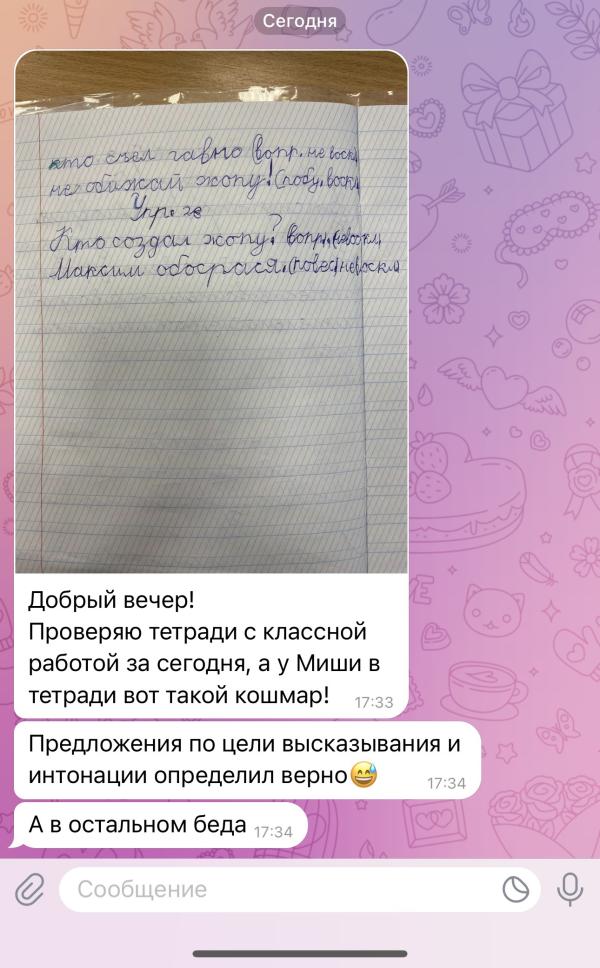 Сегодня
кто съел гавно (вопр. не воскл
не обижай жопу! (побу. воскл
Упр. ж
Кто создал жопу? вопр. (невоскл
Максим обосрася. (повес) невоскл
Добрый вечер!
Проверяю тетради с классной
работой за сегодня, а у Миши в
тетради вот такой кошмар! 17:33
Предложения по цели высказывания и
интонации определил верно😅 17:34
А в остальном беда 17:34
Сообщение